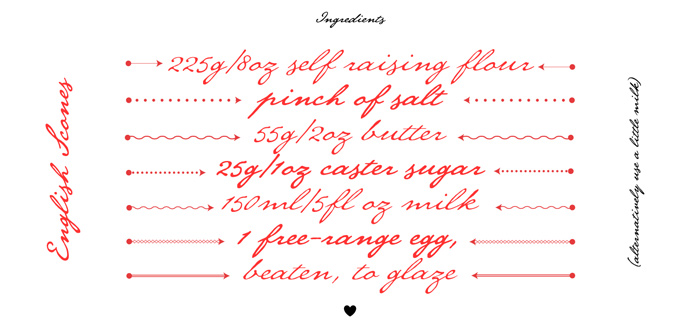 Ingredients
English Scones
225g/8oz self raising flour
pinch of salt
55g/2oz butter
25g/1oz caster sugar
150ml/5fl oz milk
1 free-range egg,
beaten, to glaze
(alternatively use a little milk)